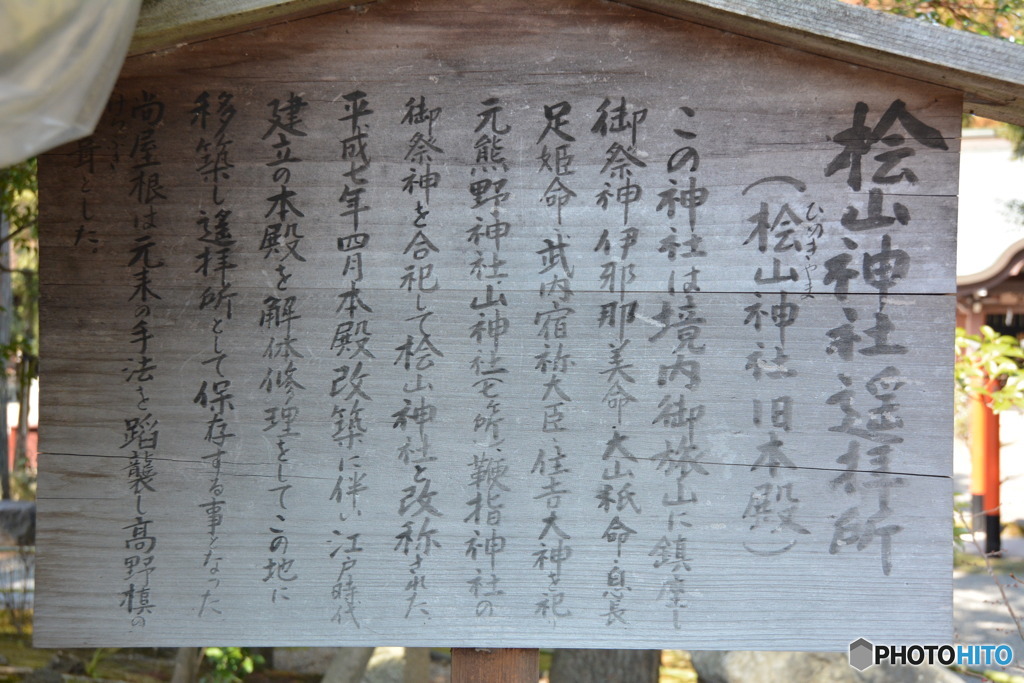 桧山神社遥拝所
(桧山神社旧本殿)
ひのきやま
この神社は境内御旅山に鎮座し
御祭神伊那那美命・大山祇命・息長
足姫命・武内宿祢大臣・住吉大神を祀
元熊野神社、山神社(七ヶ所)、鞭指神社の
御祭神を合祀して桧山神社と改称された
平成七年四月本殿改築に伴い江戸時代
建立の本殿を解体修理をしてこの地に
移築し遥拝所として保存する事となった
尚屋根は元来の手法を蹈襲し高野槙の
茸とした
PHOTOHITO